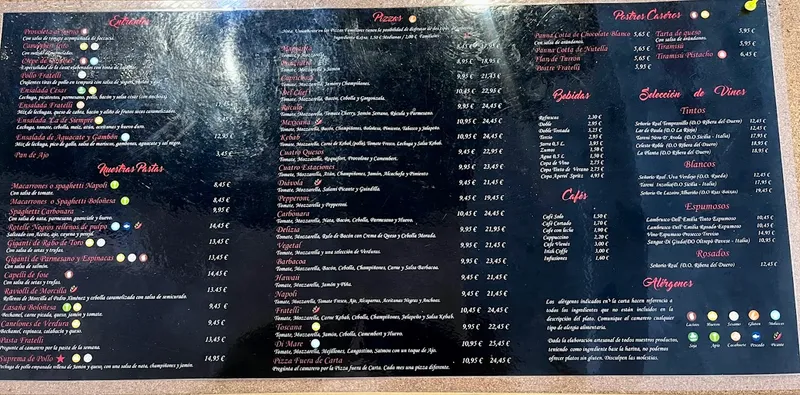 Entrantes
Provoleta al horno
Con salsa de tomate acompañada de foccacia.
Camembert frito
Con salsa de mermelada.
Pollo Fratelli
Ensalada César
Lechuga, picatostes, parmesano, pollo y salsa césar (con anchoas)
Ensalada Fratelli
Mix de lechugas, queso de cabra, bacón y labdo de frutos secos caramelizados.
Ensalada La de Siempre
Lechuga, tomate, cebolla, maíz, atún, aceitunas y huevo duro.
Ensalada de Aguacate y Gambón 12,95 €
Mix de lechuga, pico de gallo, salsa de mariscos, gambones, aguacate y sal negra.
Pan de Ajo 3,45 €
Nuestras Pastas
Macarrones o spaghetti Napoli 8,45 €
Con salsa de tomate.
Macarrones o Spaghetti Boloñesa 8,45 €
Spaghetti Carbonara 9,95 €
Con salsa de nata, parmesano, guanciale y huevo.
Rotelle Negros rellenos de pulpo 14,45 €
Salteado con Aceite, ajo, cayena y perejil.
Giganti de Rabo de Toro 13,45 €
Con salsa de setas y trufas.
Giganti de Parmesano y Espinacas 13,45 €
Con salsa de salmón.
Capelli de Jose 14,45 €
Con salsa de setas y trufas.
Ravioli de Morcilla 13,45 €
Rellenos de Morcilla al Pedro Ximénez y cebolla caramelizada con salsa de semicurado.
Lasaña Boloñesa 9,45 €
Bechamel, carne picada, queso, zanahoria y tomate.
Canelones de Verdura 9,45 €
Bechamel, espinaca, calabacín y queso.
Pasta Fratelli 13,45 €
Pregunte al camarero por la pasta de la semana.
Suprema de Pollo 14,95 €
Pechuga de pollo empanada rellena de Jamón y queso, con una salsa de nata, champiñones y jamón.
Pizzas
Nota. Únicamente en las Pizzas Familiares tienen la posibilidad de disfrutar de dos
Ingrediente Extra. 1,50 € Mediana / 2,00 € Familiares
Margarita
Prosciutto 9,95 € 18,95 €
Caprichosa 9,95 € 21,45 €
Tomate, Mozzarella, Jamón y Champiñones.
Del Chef 10,45 € 22,95 €
Tomate, Mozzarella, Bacón, Cebolla y Gorgonzola.
Rátulo 9,95 € 24,45 €
Tomate, Mozzarella, Tomate Cherry, Jamón Serrano, Rúcula y Parmesano.
Mexicana 10,95 € 24,45 €
Tomate, Mozzarella, Bacón, Champiñones, Boloñesa, Pimiento, Tabasco y Jalapeño
Kebab 10,45 € 24,45 €
Tomate, Mozzarella, Carne de Kebab, (pollo), Tomate Fresco, Lechuga y Salsa Kebab.
Cuatro Quesos 9,95 € 22,45 €
Tomate, Mozzarella, Roquefort, Provolone y Camembert.
Cuatro Estaciones 9,95 € 23,45 €
Tomate, Mozzarella, Atún, Champiñones, Jamón, Alcachofa y Pimiento
Diávola 9,45 € 21,45 €
Tomate, Mozzarella, Salami Picante y Guindilla.
Pepperoni 9,45 € 24,45 €
Tomate, Mozzarella y Pepperoni.
Carbonara 10,45 € 24,45 €
Tomate, Mozzarella, Nata, Bacón, Cebolla, Parmesano y Huevo.
Delizia 9,45 € 21,45 €
Tomate, Mozzarella, Rulo de Bacón con Crema de Queso y Cebolla Morada.
Vegetal 9,45 € 21,45 €
Tomate, Mozzarella y una selección de Verduras.
Barbacoa 9,45 € 23,45 €
Tomate, Mozzarella, Bacón, Cebolla, Champiñones, Carne y Salsa Barbacoa.
Hawaii 9,45 € 21,45 €
Tomate, Mozzarella, Jamón y Piña.
Napoli 9,45 € 21,45 €
Tomate, Mozzarella, Tomate Fresco, Ajo, Alcaparras, Aceitunas Negras y Anchoas.
Fratelli 10,45 € 24,45 €
Tomate, Mozzarella, Carne Kebab, Cebolla, Champiñones, Jalapeño y Salsa Kebab.
Toscana 9,45 € 21,45 €
Tomate, Mozzarella, Jamón, Cebolla, Camembert y Huevo.
Di Mare 10,95 € 25,45 €
Tomate, Mozzarella, Mejillones, Langostino, Salmón con un toque de Ajo.
Pizza Fuera de Carta 10,95 € 24,45 €
Pregunta al camarero por la Pizza fuera de Carta. Cada mes una pizza diferente.
Postres Caseros
Panna Cotta de Chocolate Blanco 5,65 €
Con salsa de arándanos.
Panna Cotta de Nutella 5,65 €
Flan de Turrón 5,65 €
Postre Fratelli 5,65 €
Tarta de queso 5,95 €
Con salsa de arándanos.
Tiramisú 5,95 €
Tiramisú Pistacho 6,45 €
Bebidas
Refrescos 2,50 €
Doble 2,95 €
Doble Tostada 3,25 €
Tercio 2,95 €
Jarra 0,5 L 3,95 €
Zumos 1,50 €
Agua 0,5 L 1,50 €
Copa de Vino 2,75 €
Copa Tinto de Verano 2,75 €
Copa Aperol Spritz 4,95 €
Cafés
Café Solo 1,50 €
Café Cortado 1,70 €
Café con leche 1,90 €
Cappuccino 2,20 €
Café Vienés 3,00 €
Irish Coffe 5,00 €
Infusiones 1,60 €
Selección de Vinos
Tintos
Señorío Real Tempranillo (D.O Ribera del Duero) 12,45 €
Lar de Paula (D.O La Rioja) 13,45 €
Tareni Nero d'Avola (D.O Sicilia - Italia) 17,95 €
Celeste Roble (D.O Ribera del Duero) 16,95 €
La Planta (D.O Ribera del Duero) 13,95 €
Blancos
Señorío Real Uva Verdejo (D.O Rueda) 12,45 €
Tareni Inzolia(D.O Sicilia - Italia) 17,95 €
Señorío De Lazoiro Albariño (D.O Rías Baixas) 19,45 €
Espumosos
Lambrusco Dell' Emilia Tinto Espumoso 10,45 €
Lambrusco Dell' Emilia Rosado Espumoso 10,45 €
Vino Espumoso Prosecco Treviso 14,91 €
Sangue Di Giuda(DO Oltrepò Pavese - Italia) 10,95 €
Rosados
Señorío Real (D.O Ribera del Duero) 12,45 €
Alérgenos
Los alérgenos indicados en la carta hacen referencia
a todos los ingredientes que no están incluidos en la
descripción del plato. Comunique al camarero cualquier
tipo de alergia alimentaria.
Dada la elaboración artesanal de todos nuestros productos,
teniendo como ingrediente base la harina, no podemos
ofrecer platos sin gluten. Disculpen las molestias.
Lácteos Huevos Sésamo Gluten Moluscos
Soja Apio Cacahuete Pescado Picante